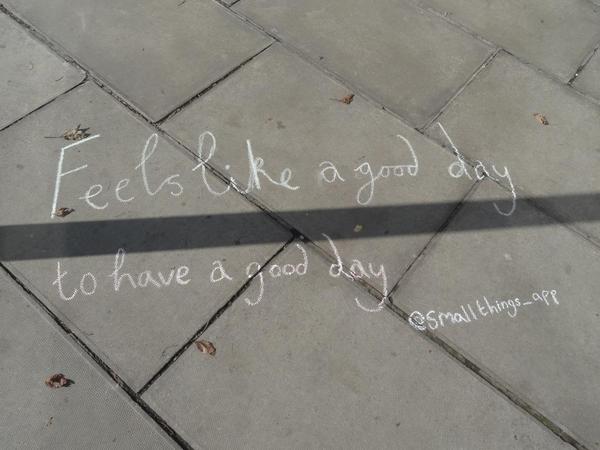 Feels like a good day
to have a good day
@smallthings_app